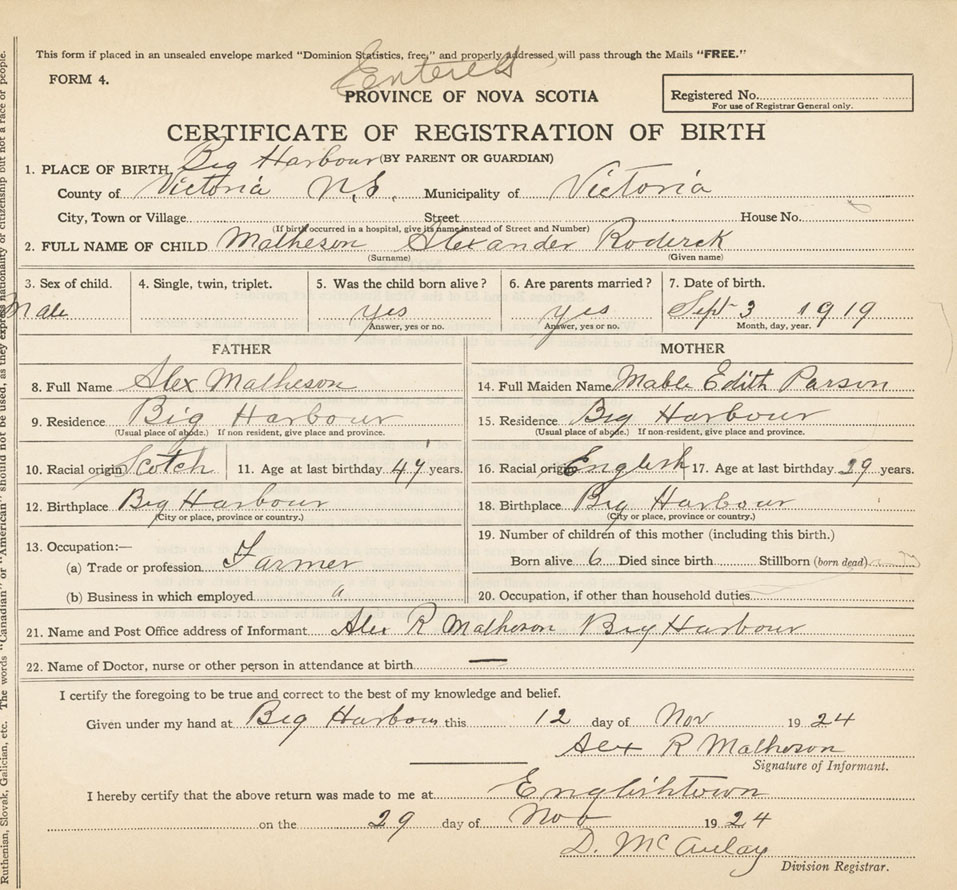 This form if placed in an unsealed envelope marked "Dominion Statistics, free," and properly addressed, will pass through the Mails "FREE."
Entered
FORM 4.
PROVINCE OF NOVA SCOTIA
Registered No.
For use of Registrar General only.
CERTIFICATE OF REGISTRATION OF BIRTH
(BY PARENT OR GUARDIAN)
1. PLACE OF BIRTH, Big Harbour
County of Victoria N.S. Municipality of Victoria
City, Town or Village Street House No.
(If birth occurred in a hospital, give its name instead of Street and Number)
2. FULL NAME OF CHILD Matheson Alexander Roderick
(Surname) (Given name)
3. Sex of child. 4. Single, twin, triplet. 5. Was the child born alive? 6. Are parents married? 7. Date of birth.
Male yes yes Sept 3 1919
Answer, yes or no. Answer, yes or no. Month, day, year.
FATHER MOTHER
8. Full Name Alex Matheson 14. Full Maiden Name Mable Edith Parson
9. Residence Big Harbour 15. Residence Big Harbour
(Usual place of abode.) If non resident, give place and province. (Usual place of abode.) If non-resident, give place and province.
10. Racial origin Scotch 11. Age at last birthday 47 years. 16. Racial origin English 17. Age at last birthday 29 years.
12. Birthplace Big Harbour 18. Birthplace Big Harbour
(City or place, province or country.) (City or place, province or country.)
13. Occupation:— 19. Number of children of this mother (including this birth.)
(a) Trade or profession Farmer Born alive 6 Died since birth Stillborn (born dead)
(b) Business in which employed " 20. Occupation, if other than household duties
21. Name and Post Office address of Informant Alex R Matheson Big Harbour
22. Name of Doctor, nurse or other person in attendance at birth —
I certify the foregoing to be true and correct to the best of my knowledge and belief.
Given under my hand at Big Harbour this 12 day of Nov 1924
Alex R Matheson
Signature of Informant.
I hereby certify that the above return was made to me at Englishtown
on the 29 day of Nov 1924
D. McAulay
Division Registrar.
Ruthenian, Slovak, Galician, etc. The words "Canadian" or "American" should not be used, as they express nationality or citizenship but not a race or people.